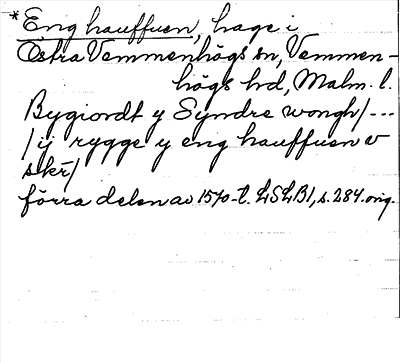 *Eng hauffuen, hage i
Östra Vemmenhögs sn, Vemmen-
högs hd, Malm. l.
Bygiordt y Syndre wongh/---
/ij rygge y eng hauffuen v
skr̄/
förra delen av 1570-t. LSLB1, s. 284. orig.